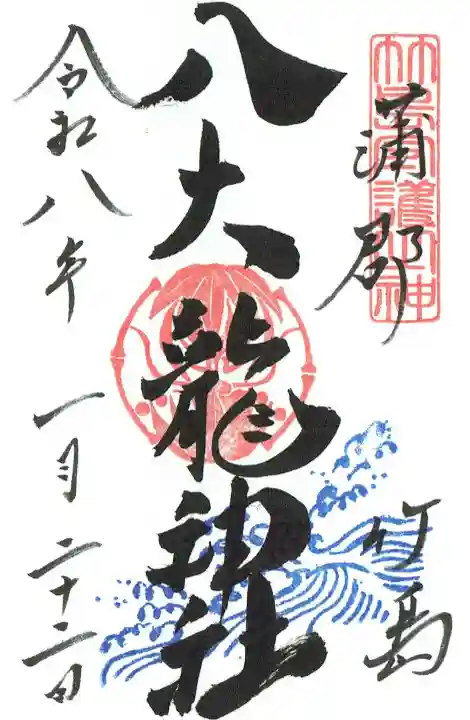 蒲郡 竹島
竹島守護之神
八大龍神社
令和八年 一月 二十二日